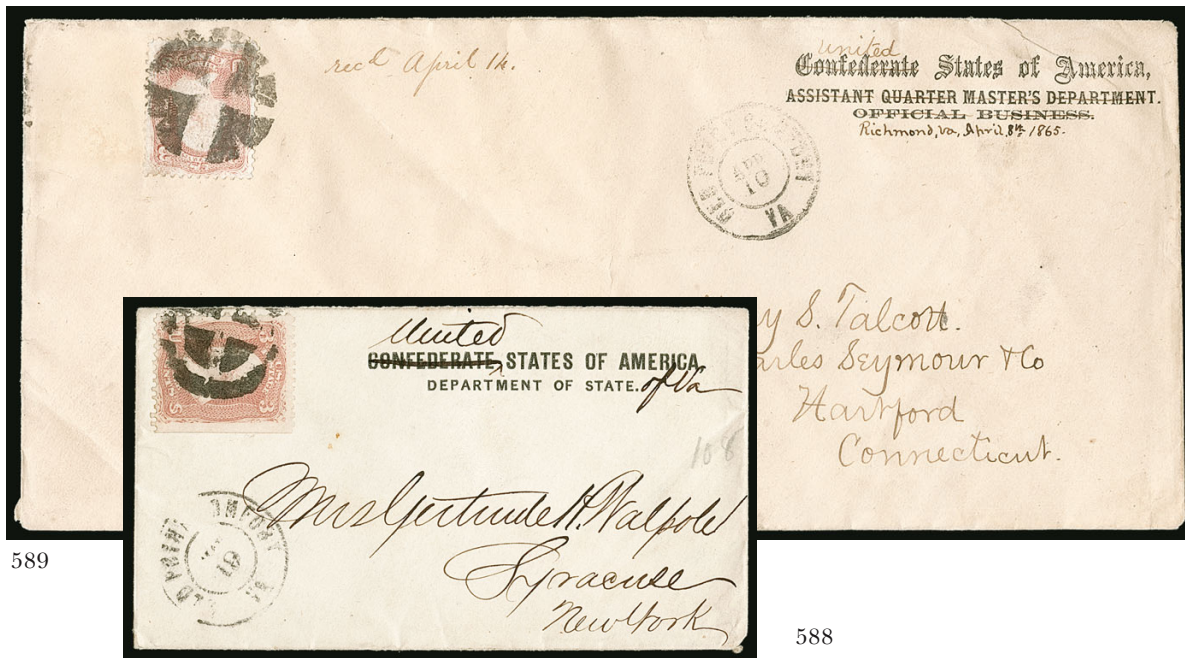 recd April 14.
United
Confederate States of America,
ASSISTANT QUARTER MASTER'S DEPARTMENT.
OFFICIAL BUSINESS.
Richmond, Va, April 8th 1865.
OLD POINT COMFORT
APR
10
VA
y S. Talcott.
arles Seymour & Co
Hartford
Connecticut.
United
CONFEDERATE STATES OF AMERICA,
DEPARTMENT OF STATE. of Va
108
OLD POINT COMFORT
VA
Mrs Gertrude H. Walpole
Syracuse
New York
589
588